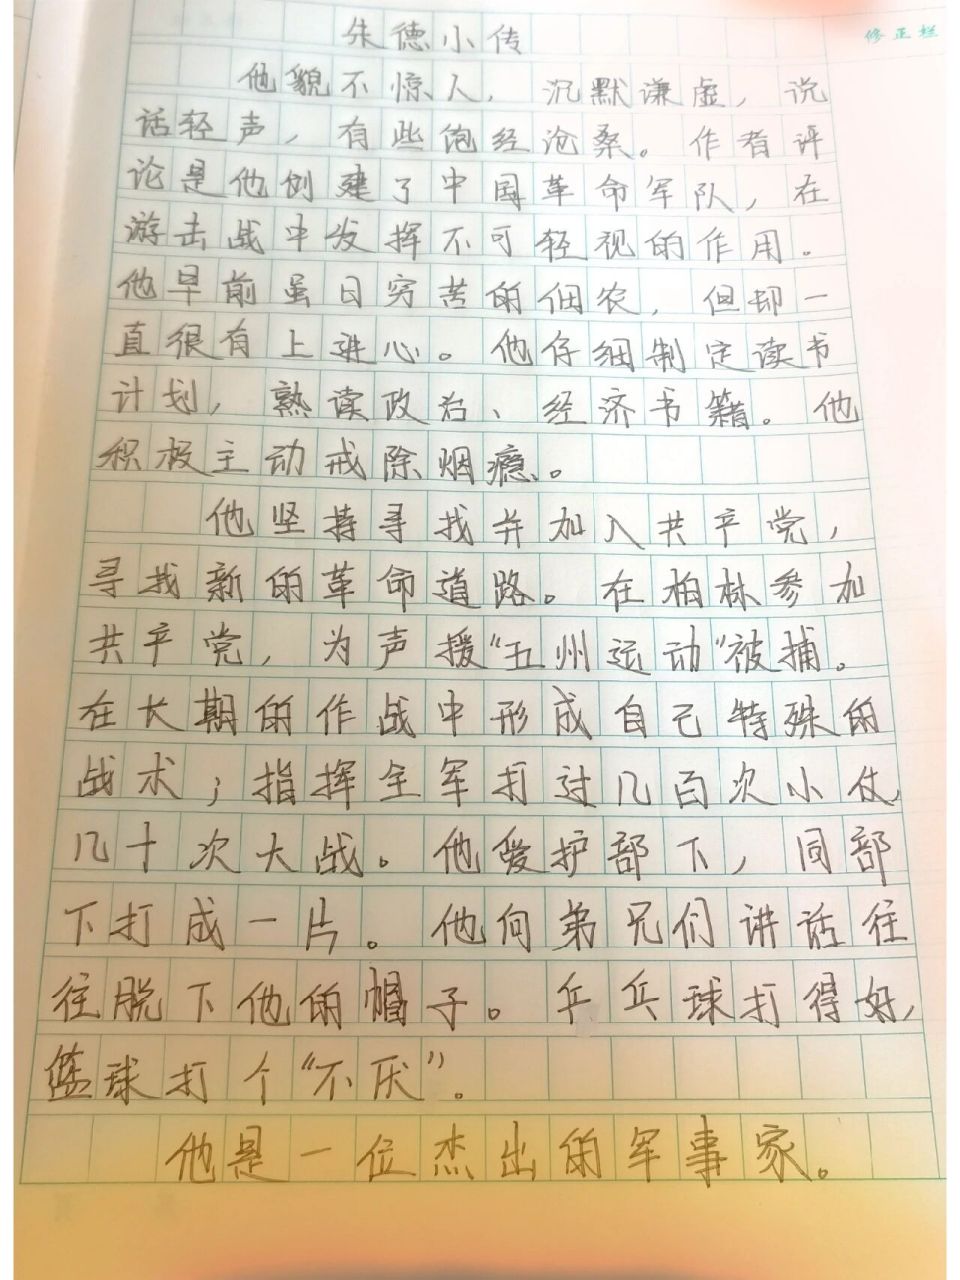 朱德小传
修正栏
他貌不惊人，沉默谦虚，说
话轻声，有些饱经沧桑。作者评
论是他创建了中国革命军队，在
游击战中发挥不可轻视的作用。
他早前虽日穷苦的佃农，但却一
直很有上进心。他仔细制定读书
计划，熟读政治、经济书籍。他
积极主动戒除烟瘾。
他坚持寻找并加入共产党，
寻找新的革命道路。在柏林参加
共产党，为声援“五州运动”被捕。
在长期的作战中形成自己特殊的
战术；指挥全军打过几百次小仗
几十次大战。他爱护部下，同部
下打成一片。他向弟兄们讲话往
往脱下他的帽子。乒乓球打得好，
篮球打个“不厌”。
他是一位杰出的军事家。